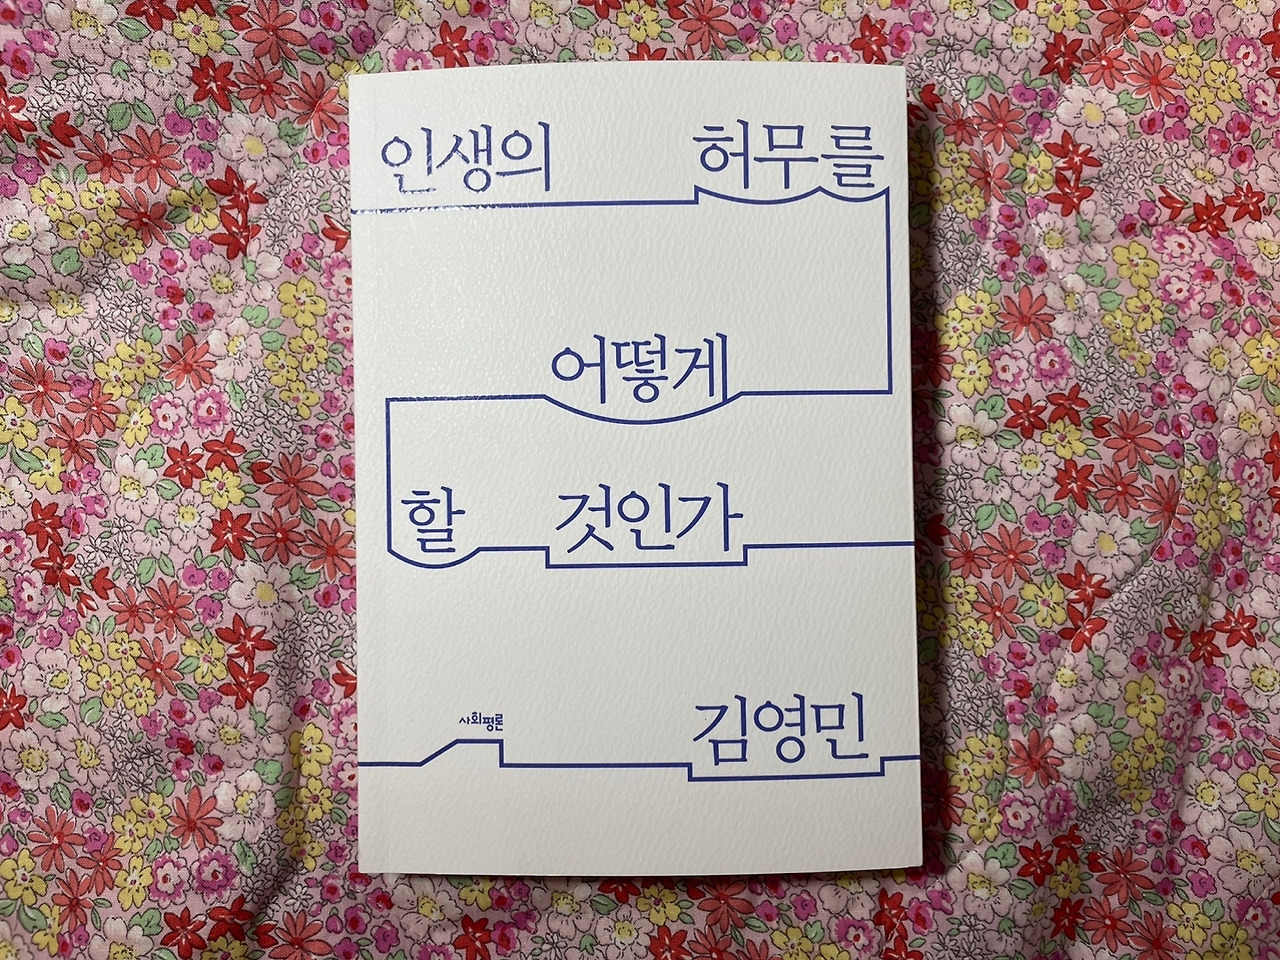 인생의 허무를
어떻게
할 것인가
김영민
사회평론